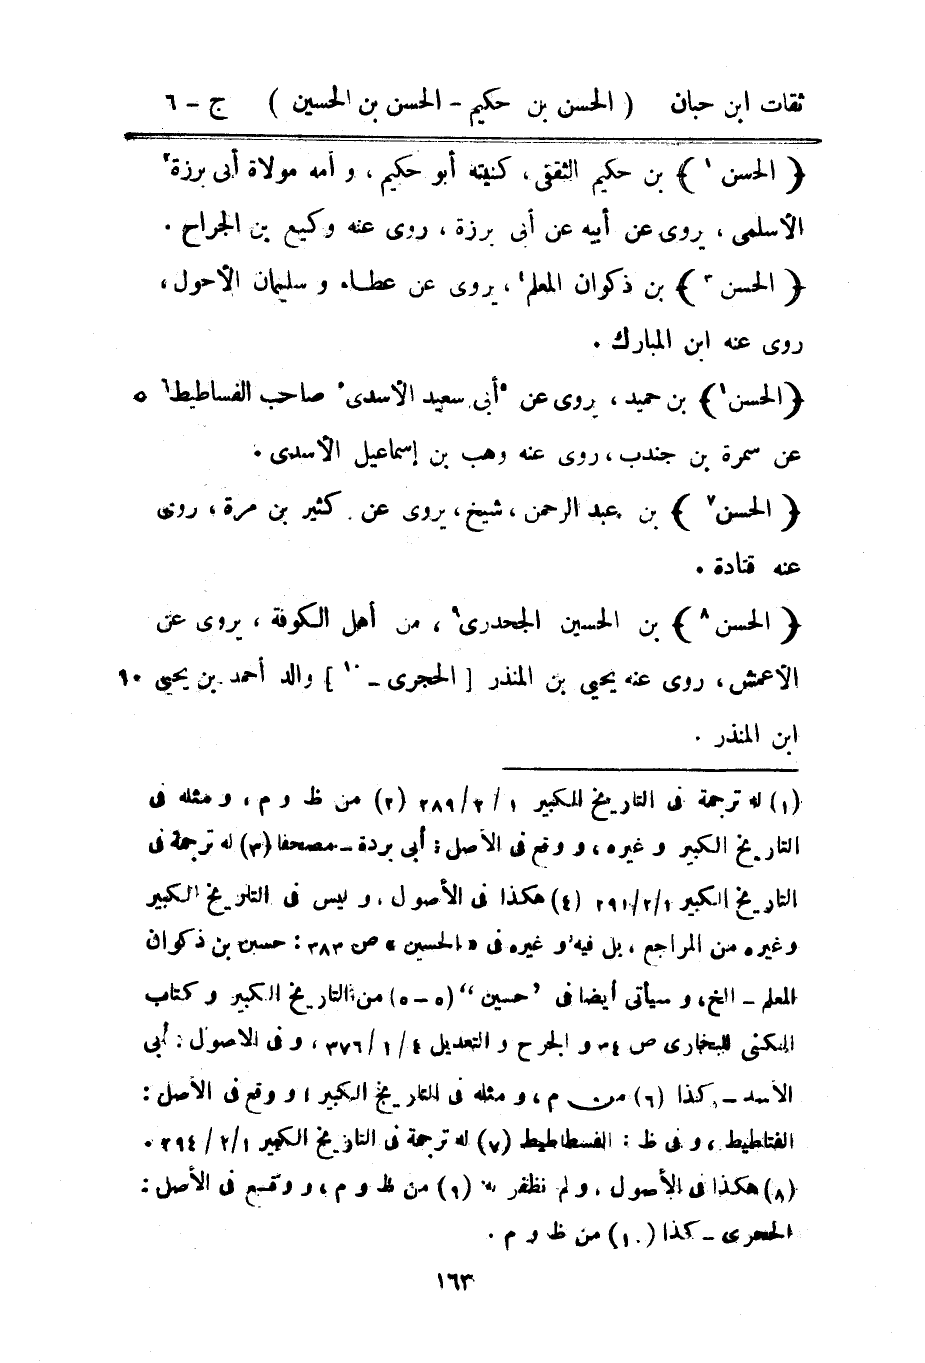 ثقات ابن حبان ( الحسن بن حكيم - الحسن بن الحسين ) ج - ٦
﴿ الحسن ١ ﴾ بن حكيم الثقفى ، كنيته أبو حكيم ، و أمه مولاة أبى برزة٢
الأسلمى ، يروى عن أبيه عن أبى برزة ، روى عنه وكيع بن الجراح .
﴿ الحسن ٣ ﴾ بن ذكوان المعلم٤ ، يروى عن عطاء و سليمان الأحول ،
روى عنه ابن المبارك .
﴿الحسن١﴾ بن حميد ، يروى عن ٥أبى سعيد الأسدى٥ صاحب الفساطيط٦ ٥
عن سمرة بن جندب ، روى عنه وهب بن إسماعيل الأسدى .
﴿ الحسن٧ ﴾ بن عبد الرحمن ، شيخ ، يروى عن كثير بن مرة ، روى
عنه قتادة .
﴿ الحسن٨ ﴾ بن الحسين الجحدرى٩ ، من أهل الكوفة ، يروى عن
الأعمش ، روى عنه يحيى بن المنذر [ الحجرى - ١٠ ] والد أحمد بن يحيى ١٠
ابن المنذر .
(١) له ترجمة فى التاريخ الكبير ١ / ٢ / ٢٨٩ (٢) من ظ و م ، و مثله فى
التاريخ الكبير و غيره ، و وقع فى الأصل : أبى بردة - مصحفا (٣) له ترجمة فى
التاريخ الكبير ١ / ٢ / ٢٩١ (٤) هكذا فى الأصول ، و ليس فى التاريخ الكبير
وغيره من المراجع ، بل فيه و غيره فى « الحسين » ص ٣٨٣ : حسين بن ذكوان
المعلم - الخ ، و سيأتى أيضا فى ”حسين“ (٥ - ٥) من التاريخ الكبير و كتاب
الكنى للبخارى ص ٣٤ و الجرح و التعديل ٤ / ١ / ٣٧٦ ، و فى الأصول : أبى
الأسد - كذا (٦) من م ، و مثله فى التاريخ الكبير ؛ و وقع فى الأصل :
الفتاطيط ، و فى ظ : الفسطاطيط (٧) له ترجمة فى التاريخ الكبير ١ / ٢ / ٢٩٤ .
(٨) هكذا فى الأصول ، و لم نظفر به (٩) من ظ و م ، و وقع فى الأصل :
الححرى - كذا (١٠) من ظ و م .
١٦٣